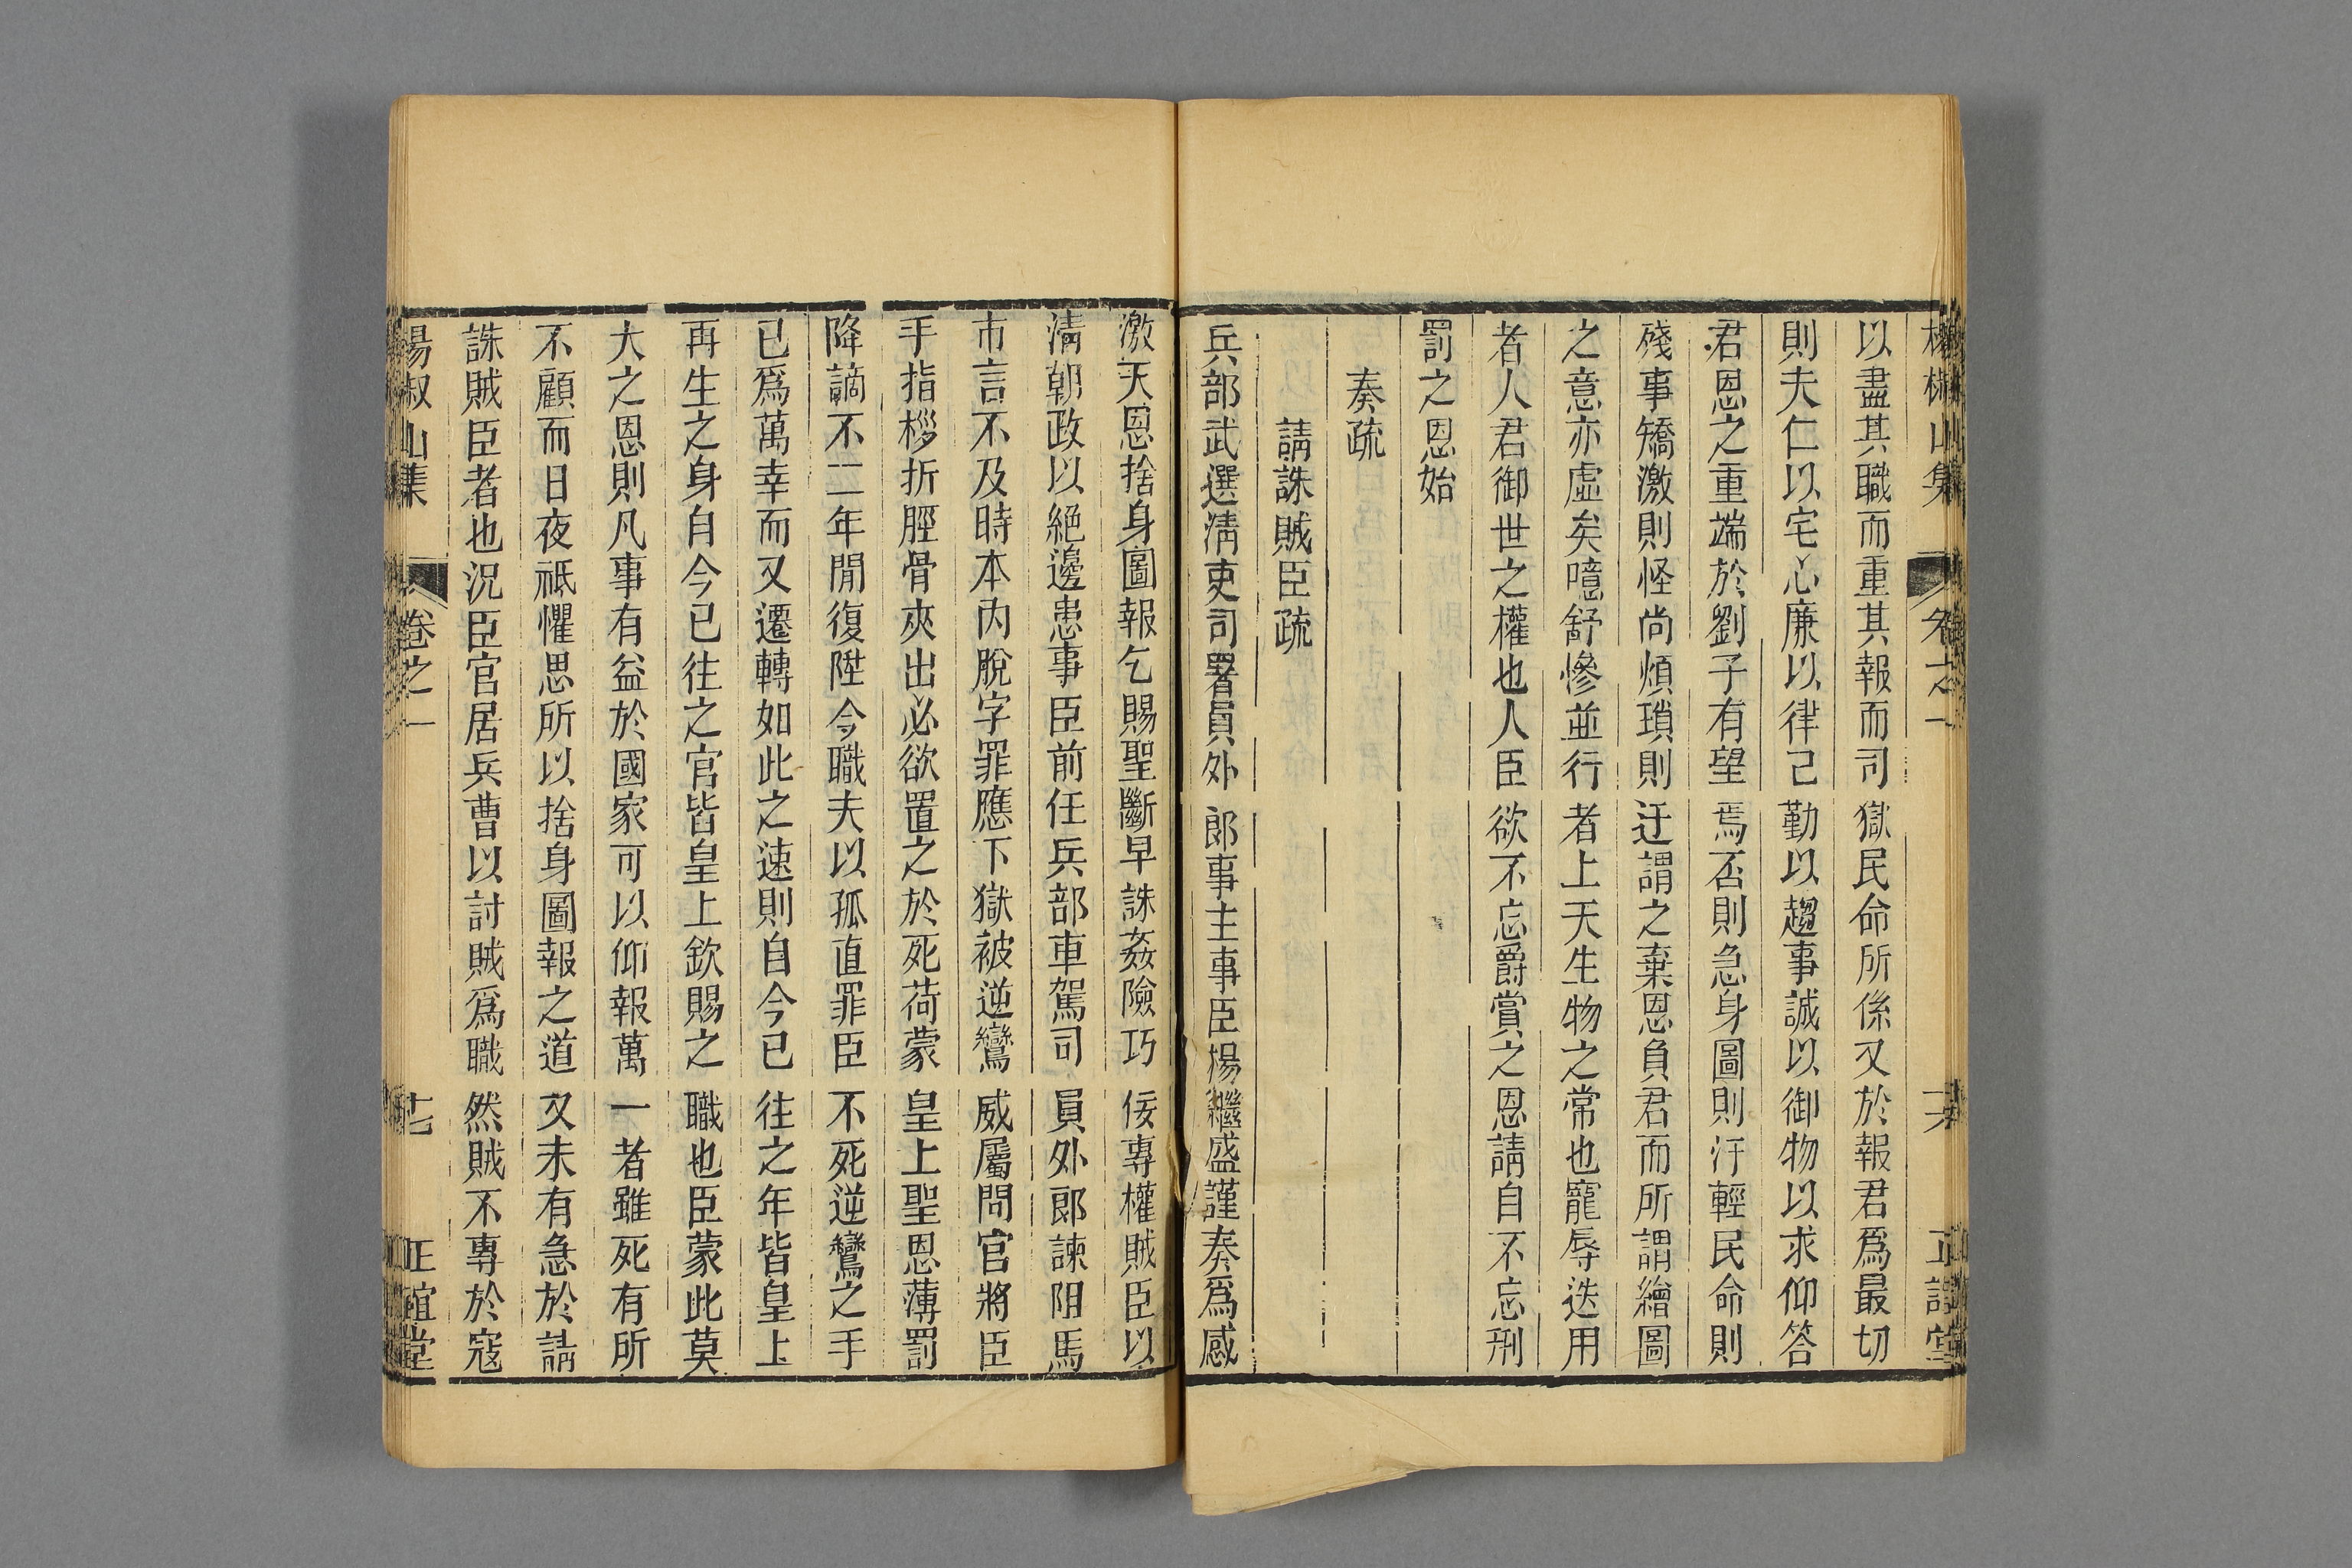 楊椒山集 卷之一 十六 正誼堂
以盡其職而重其報而司獄民命所係又於報君爲最切
則夫仁以宅心廉以律己勤以趨事誠以御物以求仰答
君恩之重端於劉子有望焉否則急身圖則汙輕民命則
殘事矯激則怪尚煩瑣則迂謂之棄恩負君而所謂繪圖
之意亦虛矣噫舒慘並行者上天生物之常也寵辱迭用
者人君御世之權也人臣欲不忘爵賞之恩請自不忘刑
罰之恩始
奏疏
請誅賊臣疏
兵部武選淸吏司署員外郎事主事臣楊繼盛謹奏爲感
激天恩捨身圖報乞賜聖斷早誅姦險巧佞專權賊臣以
淸朝政以絕邊患事臣前任兵部車駕司員外郎諫阻馬
市言不及時本內脫字罪應下獄被逆鸞威屬問官將臣
手指桚折脛骨夾出必欲置之於死荷蒙皇上聖恩薄罰
降謫不二年閒復陞今職夫以孤直罪臣不死逆鸞之手
已爲萬幸而又遷轉如此之速則自今已往之年皆皇上
再生之身自今已往之官皆皇上欽賜之職也臣蒙此莫
大之恩則凡事有益於國家可以仰報萬一者雖死有所
不顧而日夜祗懼思所以捨身圖報之道又未有急於請
誅賊臣者也況臣官居兵曹以討賊爲職然賊不專於寇
楊椒山集 卷之一 十七 正誼堂